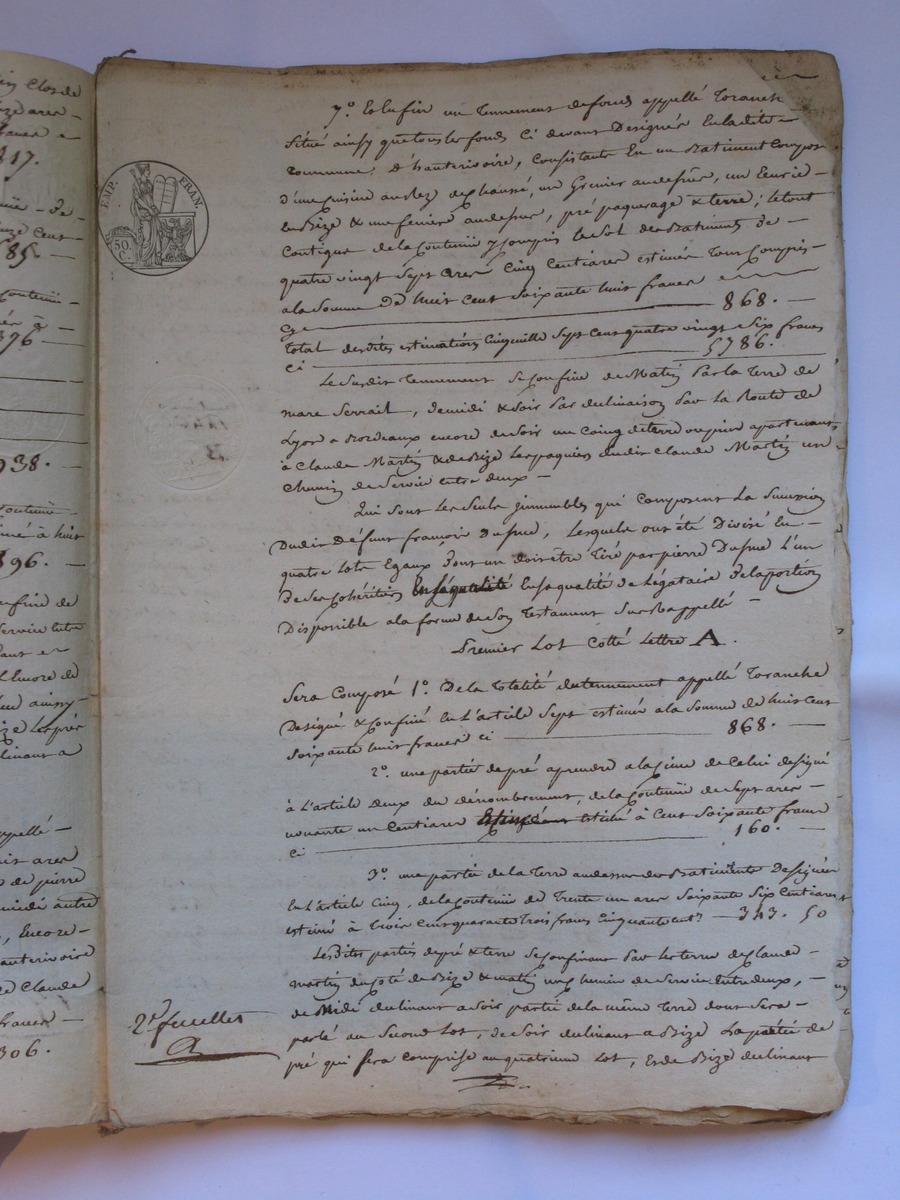 in Clos de
817.
85.
Contenüe
376
938.
Contenüe
à huit
896.
Confine de
Service entre
Encore de
aussy
Claude
francs
306.
EMP. FRAN.
50. C.
7° Et Enfin un Tennement de fond appellé Toranche
Situé ainsy que tous les fonds Ci devant Designés En la dite
Commune d'hauterivoire, Consistante En un Batiment Composé
d'une Cuisine au Rez de Chaussé, un Grenier au dessus, un Ecurie
de Bize & une feniere au dessus, pré paquerage & terre ; le tout
Contigue de la Contenüe y Compris le Sol des Batiments de
quatre vingt Sept ares Cinq Centiares estimés Tout Compris
a la Somme de huit Cent Soixante huit francs
Cy 868.
Total des dites estimations Cinq mille Sept Cent quatre vingt Six francs
Ci 5786.
Le Susdit Tennement Se Confine de Matin Par la Terre de
mare Serrail, de midi & Soir Par declinaison Par la Route de
Lyon a Bordeaux encore de Soir un Coing de terre ou pin apartenant
à Claude Martin & de Bize Les paquiers du dit Claude Martin un
Chemin de Service Entre deux
Qui Sont les Seuls immeubles qui Composent La Succession
Dudit Défunt françois Dufrue, Lesquels ont été Divisé En
quatre Lots Egaux dont un doit être Tiré par pierre Dufrue L'un
De Ses Cohéritiers En Sa qualité En Sa qualité de Légataire De la portion
Disponible a la forme de Son Testament Sus Rappellé
Premier Lot Cotté Lettre A.
Sera Composé 1° De la Totalité du tennement appellé Toranche
Designé & Confiné En L'article Sept estimée a la Somme de huit Cent
Soixante huit francs ci 868.
2° une partie de pré a prendre a la Cime de Celui designé
à L'article deux du dénombrement, de la Contenüe de Sept ares
nonante un Centiares estimé à Cent Soixante francs
ci 160.
3° une partie de la Terre au dessus des Batiments Designée
En L'article Cinq, de la Contenüe de Trente un ares Soixante Six Centiares
estimé à Trois Cent quarante Trois francs Cinquante cent.s 343. 50
Les Dites parties de pré & terre Se Confinant Par les terres de Claude
Martin du Coté de Bize & matin un Chemin de Service Entre deux,
de Midi declinant a Soir partie de la même Terre dont Sera
parlé au Second Lot, de Soir declinant a Bize La partie de
pré qui Sera Comprise au quatrieme Lot, Et de Bize declinant
2.e feuillet